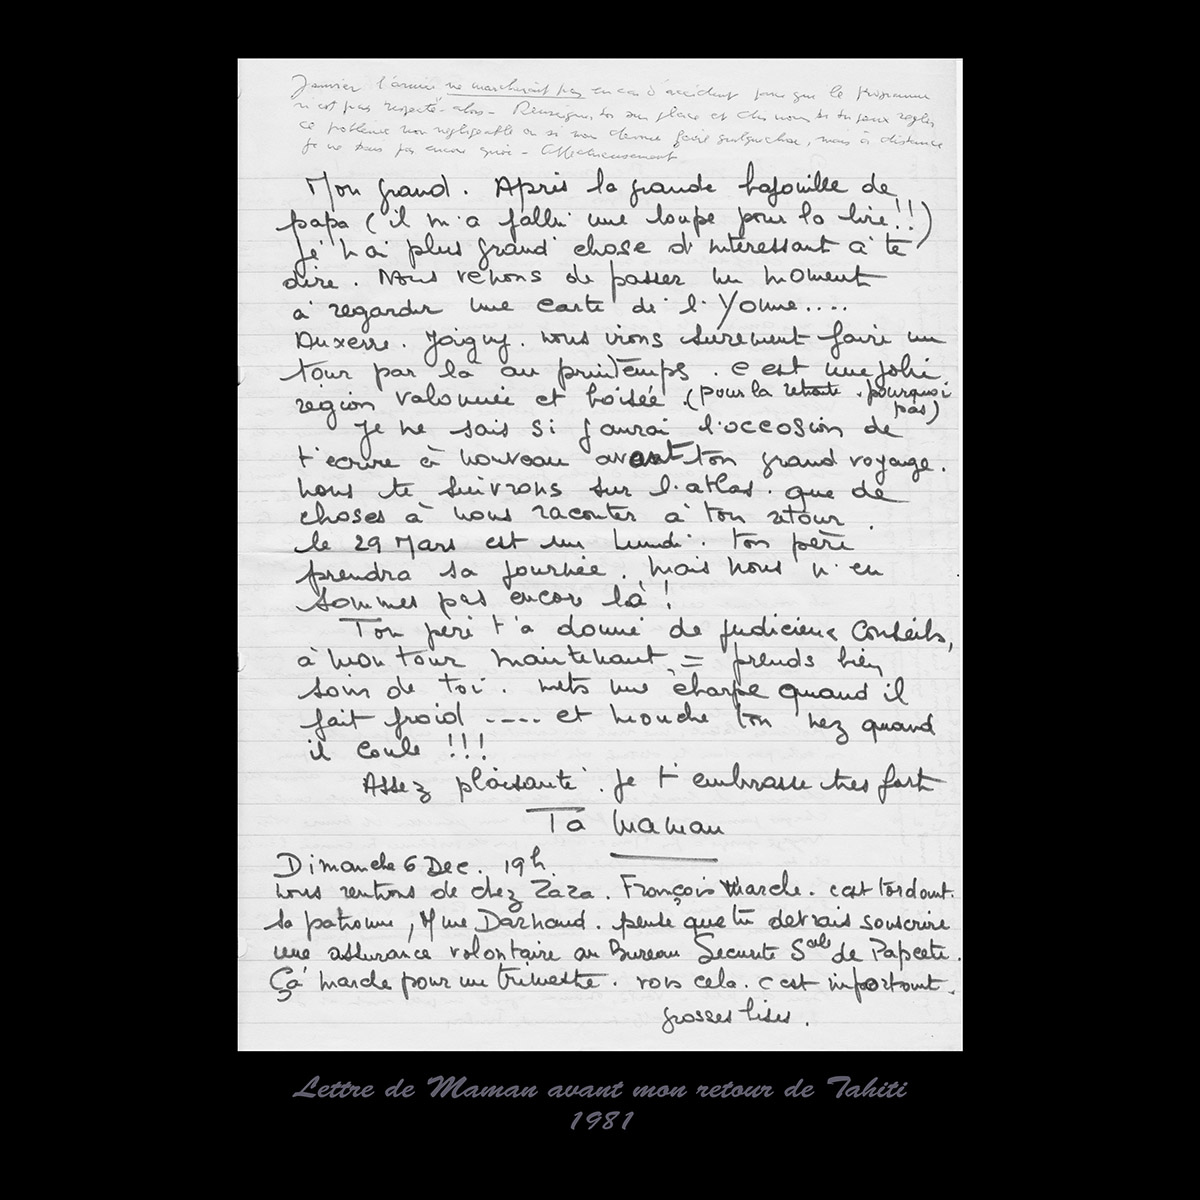 Janvier l'armée ne marcherait pas en cas d'accident pour que le programme
n'est pas respecté - alors - Renseigne toi sur place et dis nous si tu peux régler
ce problème non négligeable ou si nous devons faire quelque chose, mais à distance
je ne sais pas encore quoi - Affectueusement
Mon grand. Après la grande bafouille de
papa (il m'a fallu une loupe pour la lire!!)
je n'ai plus grand chose d'interessant à te
dire. Nous venons de passer un moment
à regarder une carte de l'Yonne....
Auxerre. Joigny. nous irons surement faire un
tour par là au printemps. c'est une jolie
région valonnée et boisée. (pour la retraite. pourquoi
pas)
Je ne sais si j'aurai l'occasion de
t'ecrire à nouveau avant ton grand voyage.
nous te suivrons sur l'atlas. que de
choses à nous raconter à ton retour.
le 29 Mars est un lundi. ton père
prendra sa journée. mais nous n'en
sommes pas encore là!
Ton père t'a donné de judicieux conseils,
à mon tour maintenant = prends bien
soin de toi. mets une écharpe quand il
fait froid .... et mouche ton nez quand
il coule !!!
Assez plaisanté. Je t'embrasse tres fort
Ta maman
Dimanche 6 Dec. 19h.
nous rentrons de chez Zaza. François marche. c'est tordant.
Sa patronne, Mme Darnaud. pense que tu devrais souscrire
une assurance volontaire au Bureau Securite Sale de Papeete.
Çà marche pour un trimestre. vois cela. c'est important.
grosses bises.
Lettre de Maman avant mon retour de Tahiti
1981